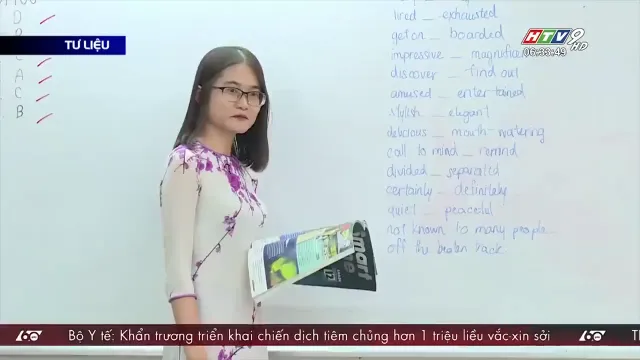 TƯ LIỆU
HTV9 HD
06:33:49
D
C
A
C
B
tired _ exhausted
get on _ boarded
impressive _
discover _ find out
amused _ entertained
stylish _ elegant
delicious _ mouth-watering
call to mind _ remind
divided _ separated
certainly _ definitely
quiet _ peaceful
not known to many people
off the beaten track
smart
60
Bộ Y tế: Khẩn trương triển khai chiến dịch tiêm chủng hơn 1 triệu liều vắc-xin sởi
60